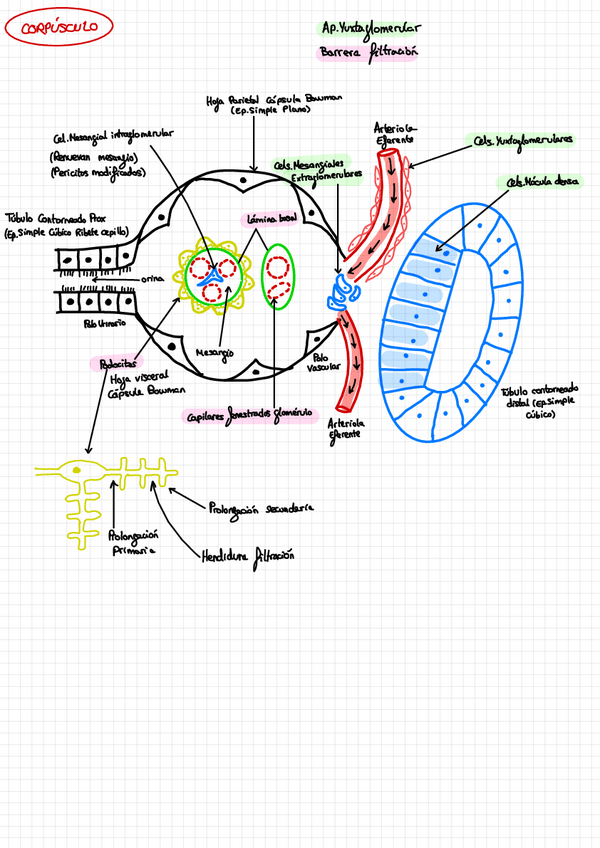 CORPÚSCULO
Ap. Yuxtaglomerular
Barrera filtración
Hoja Parietal Cápsula Bowman
(Ep. Simple Plano)
Cel. Mesangial intraglomerular
(Renuevan mesangio)
(Pericitos modificados)
Cels. Mesangiales
Extraglomerulares
Arteriola
Eferente
Cels. Yuxtaglomerulares
Cels. Mácula densa
Túbulo Contorneado Prox
(Ep. Simple Cúbico Ribete cepillo)
Lámina basal
orina
Polo Urinario
Mesangio
Polo
Vascular
Podocitos
Hoja visceral
Cápsula Bowman
Capilares fenestrados glomérulo
Arteriola
Eferente
Túbulo contorneado
distal (Ep. Simple
Cúbico)
Prolongación secundaria
Prolongación
primaria
Hendidura filtración